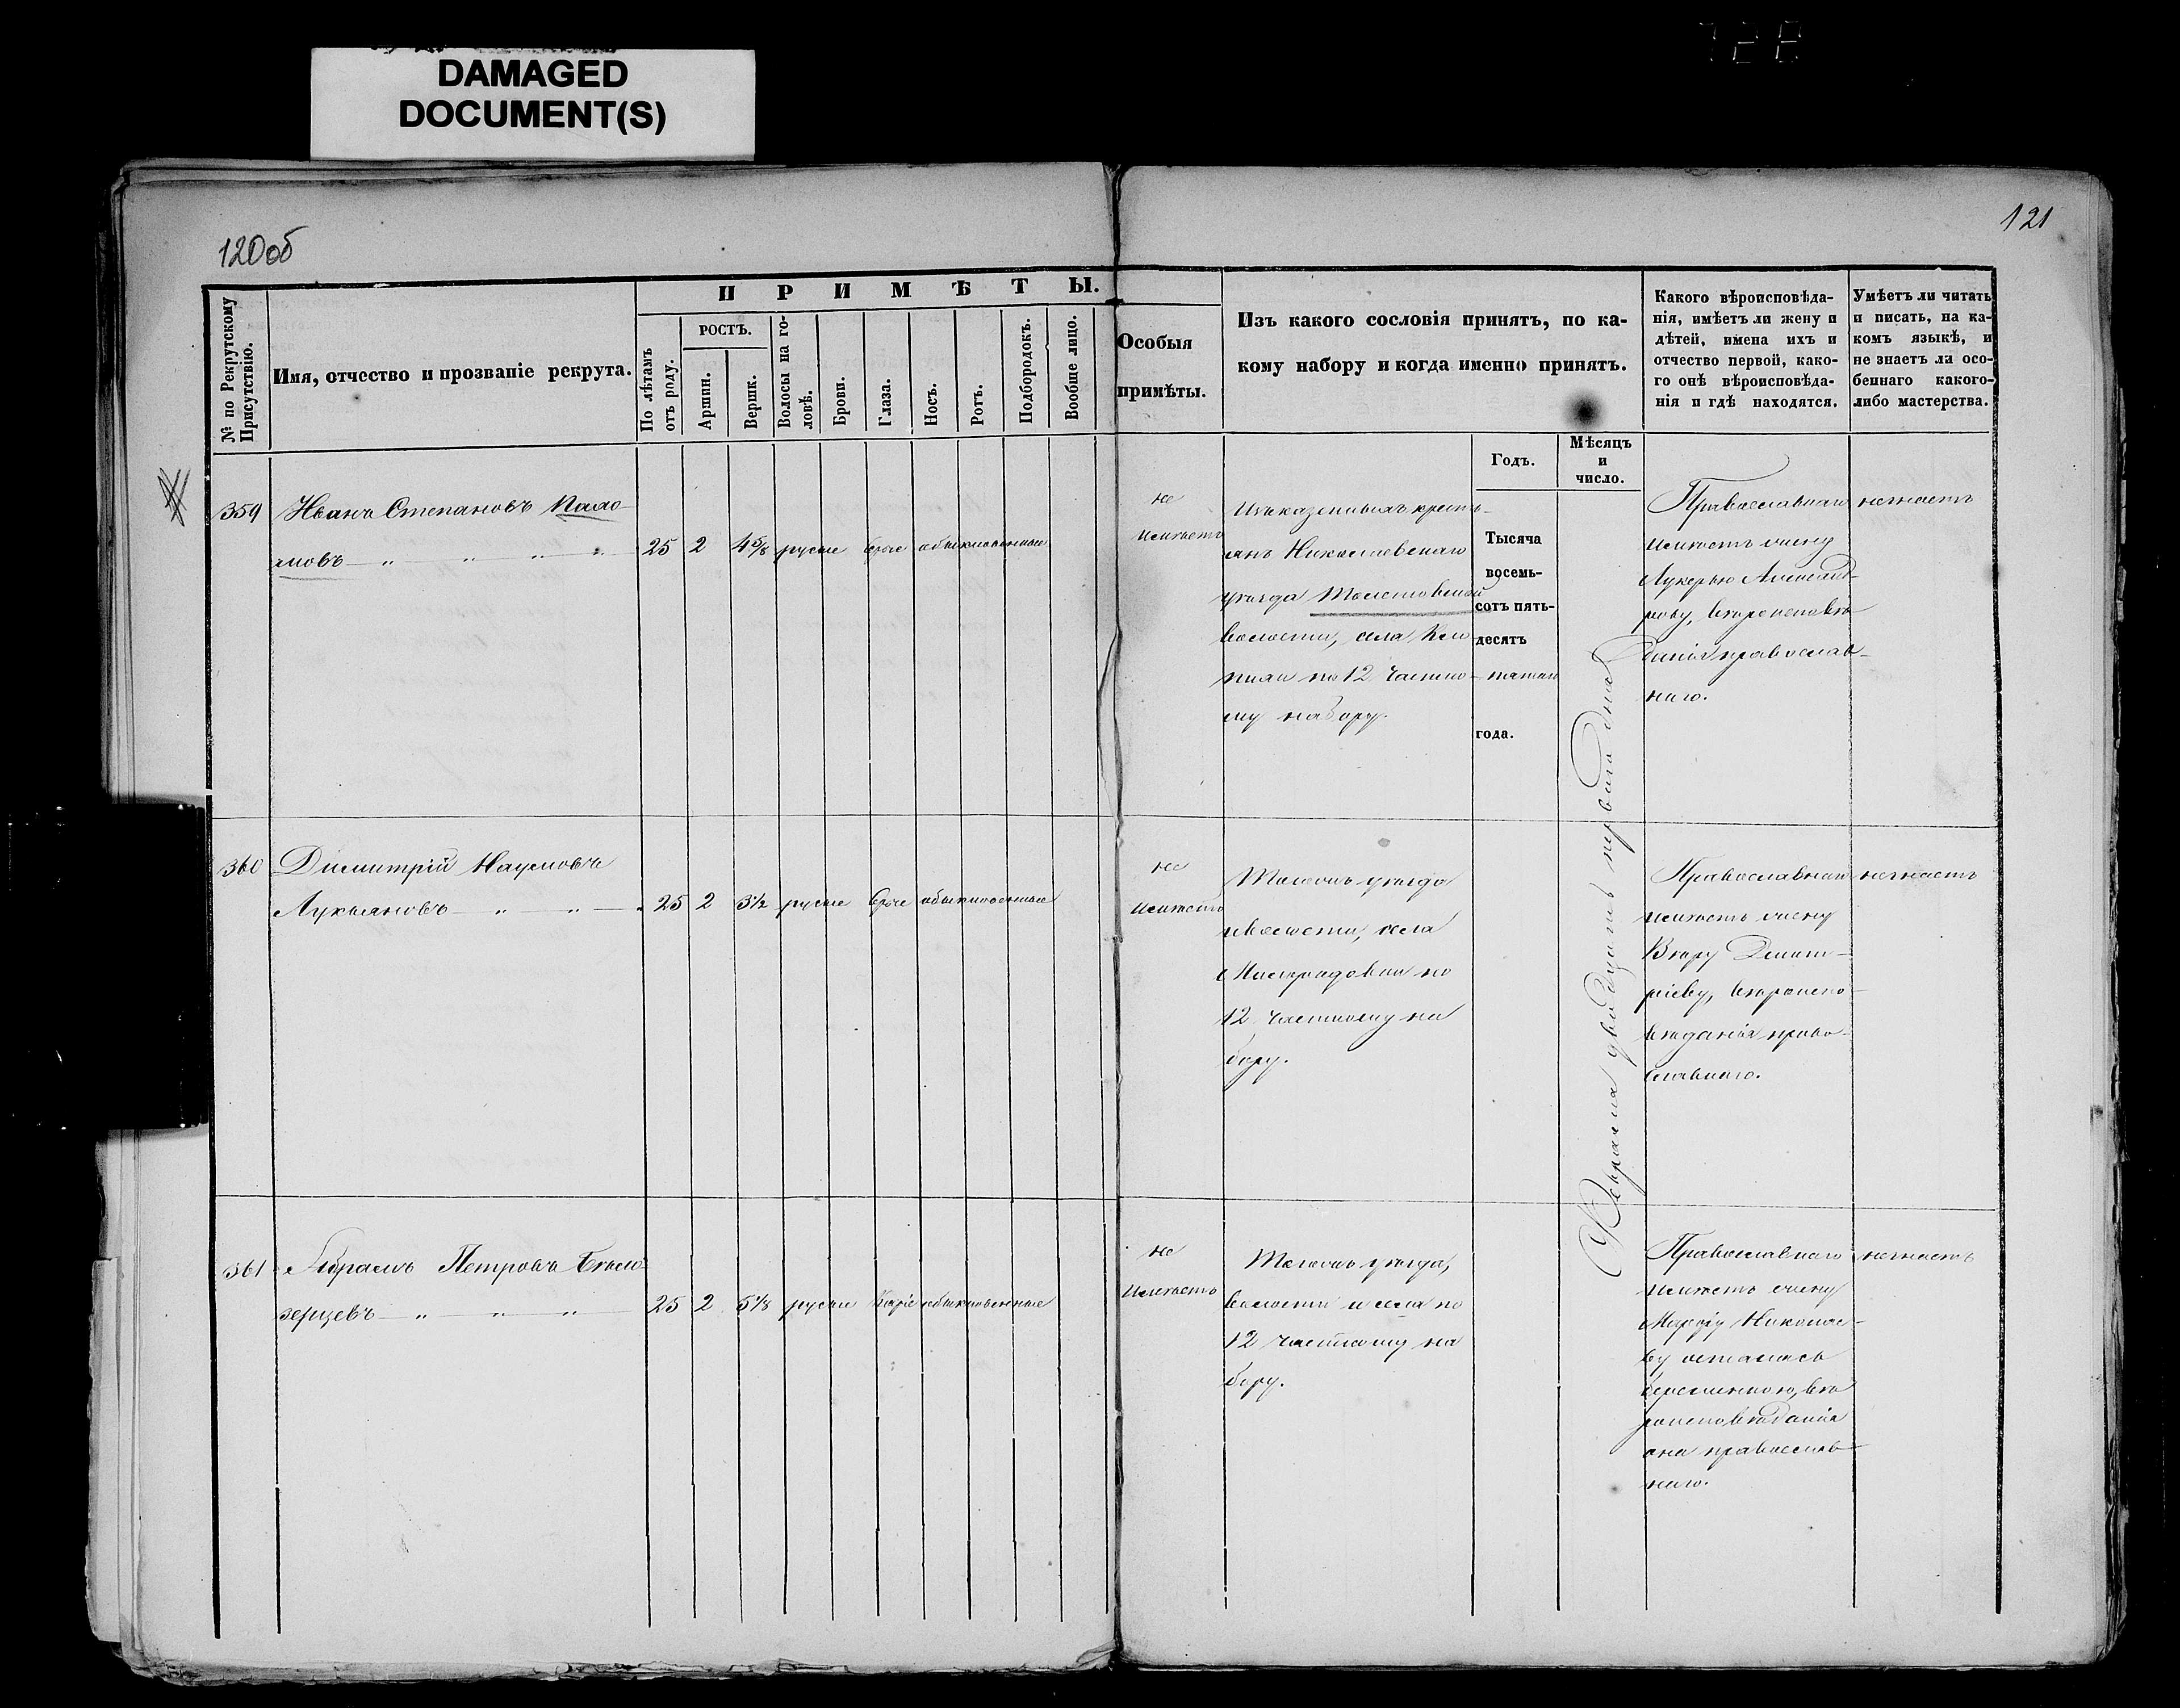 DAMAGED
DOCUMENT(S)
120об
121
№ по Рекрутскому
Присутствію.
Имя, отчество и прозваніе рекрута.
ПРИМѢТЫ.
По лѣтамъ
отъ роду.
РОСТЪ.
Аршин.
Вершк.
Волосы на го-
ловѣ.
Брови.
Глаза.
Носъ.
Ротъ.
Подбородокъ.
Вообще лицо.
Особыя
примѣты.
Изъ какого сословія принятъ, по ка-
кому набору и когда именно принятъ.
Годъ.
Мѣсяцъ
и
число.
Какого вѣроисповѣда-
нія, имѣетъ ли жену и
дѣтей, имена ихъ и
отчество первой, како-
го онѣ вѣроисповѣда-
нія и гдѣ находятся.
Умѣетъ ли читать
и писать, на ка-
комъ языкѣ, и
не знаетъ ли осо-
беннаго какого-
либо мастерства.
359
Иванъ Степановъ
25 2 4⅝ русые сѣрые обыкновенные
не
имѣетъ
Изъ казенныхъ кресть-
янъ Николаевскаго
уѣзда
волости, села
по 12 частно-
му набору.
Тысяча
восемь-
сотъ пять-
десятъ
пятаго
года.
Февраля двадцать перваго дня
Православнаго
имѣетъ жену
Лукерью Александ-
рову, вѣроисповѣ-
данія православ-
наго.
незнаетъ
360
Димитрій Наумовъ
Лукьяновъ
25 2 3½ русые сѣрые обыкновенные
не
имѣетъ
уѣзда
и волости, села
по
12 частному на
бору.
Православнаго
имѣетъ жену
Вѣру Дмит-
ріеву, вѣроиспо-
вѣданія право-
славнаго.
незнаетъ
361
Абрамъ Петровъ Бѣло
зерцевъ
25 2 5⅛ русые Каріе обыкновенные
не
имѣетъ
уѣзда,
волости и села по
12 частному на
бору.
Православнаго
имѣетъ жену
Марфу Николае-
ву осталась
беременною, вѣ
роисповѣданія
она православ
наго.
незнаетъ